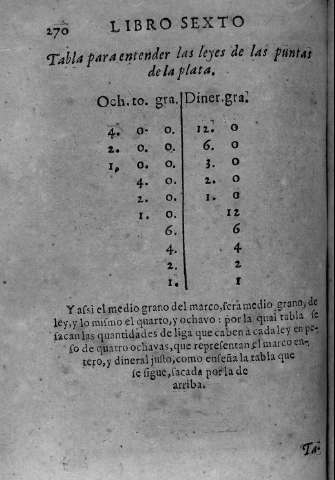 270 LIBRO SEXTO
Tabla para entender las leyes de las puntas
de la plata.
Och. to. gra. Diner. gra.
4. 0. 0. 12. 0
2. 0. 0. 6. 0
1. 0. 0. 3. 0
4. 0. 2. 0
2. 0. 1. 0
1. 0. 12
6. 6
4. 4
2. 2
1. 1
Y assi el medio grano del marco, serà medio grano, de
ley, y lo mismo el quarto, y ochavo: por la qual tabla se
sacan las quantidades de liga que caben à cada ley en pe-
so de quatro ochavas, que representan el marco en-
tero, y dineral justo, como enseña la tabla que
se sigue, sacada por la de
arriba.
Ta-